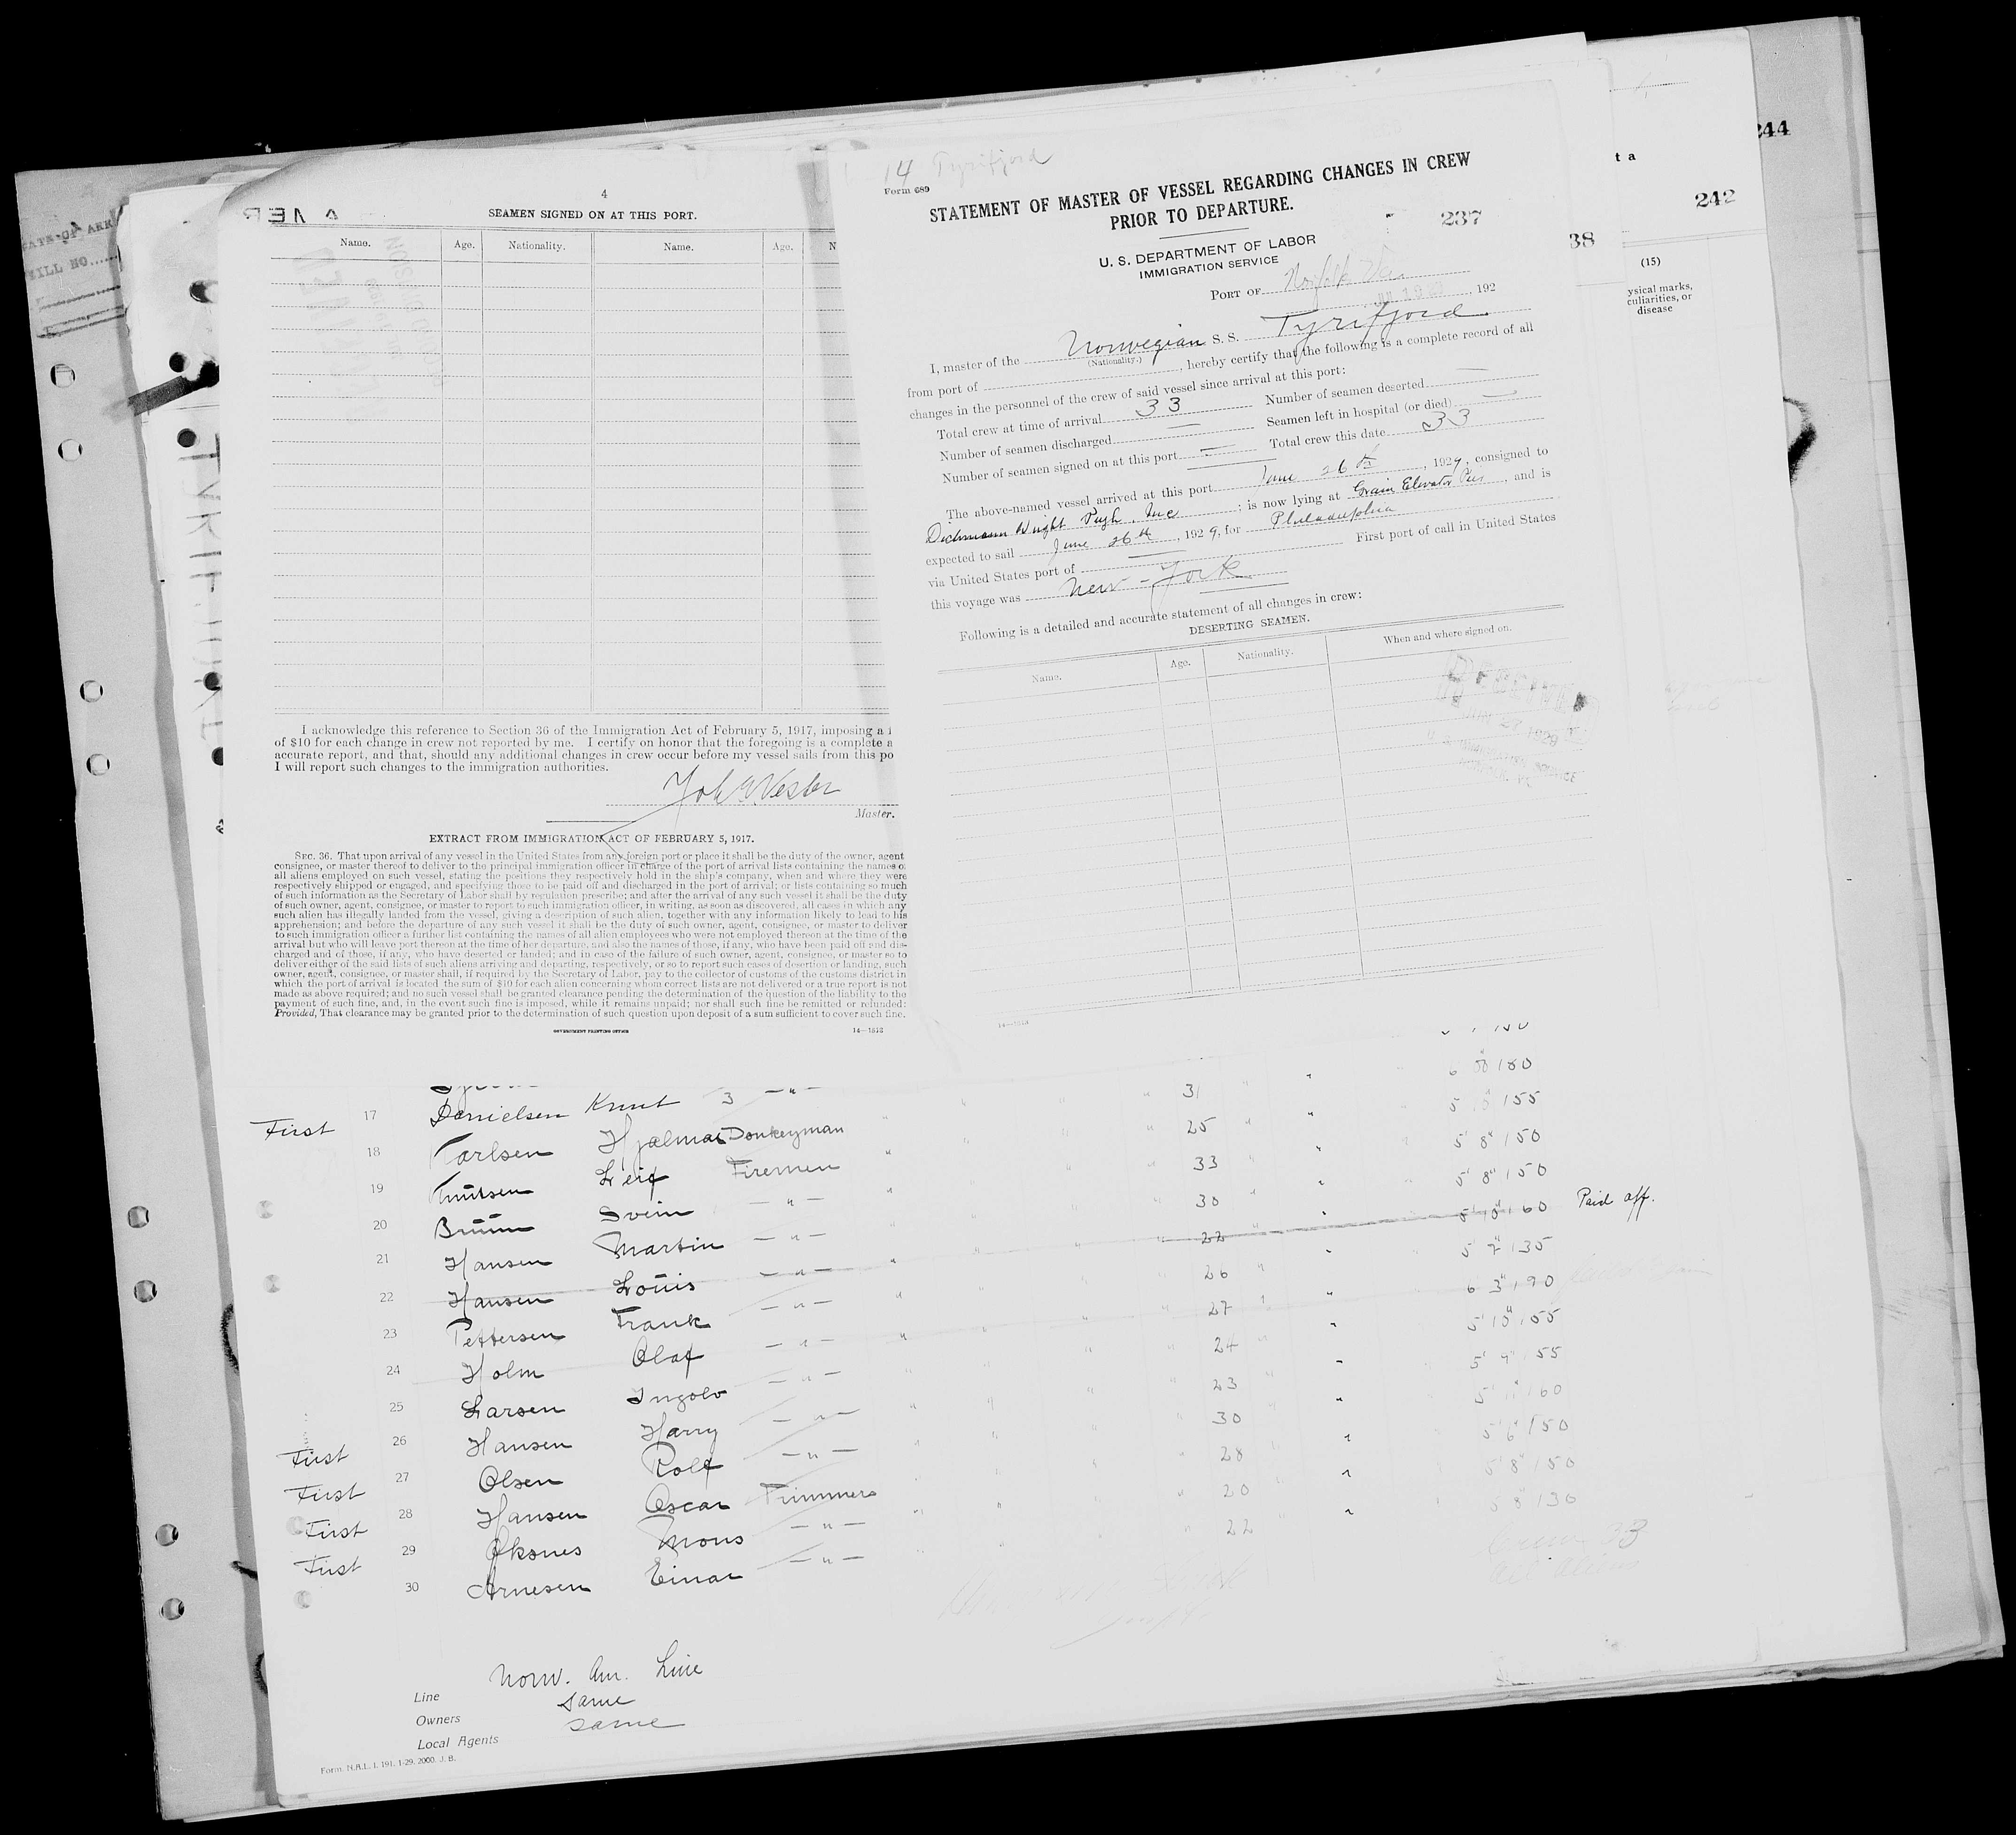 4
SEAMEN SIGNED ON AT THIS PORT.
Name. Age. Nationality. Name. Age.
I acknowledge this reference to Section 36 of the Immigration Act of February 5, 1917, imposing a
of $10 for each change in crew not reported by me. I certify on honor that the foregoing is a complete a
accurate report, and that, should any additional changes in crew occur before my vessel sails from this po
I will report such changes to the immigration authorities.
Master.
EXTRACT FROM IMMIGRATION ACT OF FEBRUARY 5, 1917.
SEC. 36. That upon arrival of any vessel in the United States from any foreign port or place it shall be the duty of the owner, agent
consignee, or master thereof to deliver to the principal immigration officer in charge of the port of arrival lists containing the names o
all aliens employed on such vessel, stating the positions they respectively hold in the ship's company, when and where they were
respectively shipped or engaged, and specifying those to be paid off and discharged in the port of arrival; or lists containing so much
of such information as the Secretary of Labor shall by regulation prescribe; and after the arrival of any such vessel it shall be the duty
of such owner, agent, consignee, or master to report to such immigration officer, in writing, as soon as discovered, all cases in which any
such alien has illegally landed from the vessel, giving a description of such alien, together with any information likely to lead to his
apprehension; and before the departure of any such vessel it shall be the duty of such owner, agent, consignee, or master to deliver
to such immigration officer a further list containing the names of all alien employees who were not employed thereon at the time of the
arrival but who will leave port thereon at the time of her departure, and also the names of those, if any, who have been paid off and dis-
charged and of those, if any, who have deserted or landed; and in case of the failure of such owner, agent, consignee, or master so to
deliver either of the said lists of such aliens arriving and departing, respectively, or so to report such cases of desertion or landing, such
owner, agent, consignee, or master shall, if required by the Secretary of Labor, pay to the collector of customs of the customs district in
which the port of arrival is located the sum of $10 for each alien concerning whom correct lists are not delivered or a true report is not
made as above required; and no such vessel shall be granted clearance pending the determination of the question of the liability to the
payment of such fine, and, in the event such fine is imposed, while it remains unpaid; nor shall such fine be remitted or refunded:
Provided, That clearance may be granted prior to the determination of such question upon deposit of a sum sufficient to cover such fine.
GOVERNMENT PRINTING OFFICE 14—1813
14 Tyrifjord
Form 689
STATEMENT OF MASTER OF VESSEL REGARDING CHANGES IN CREW
PRIOR TO DEPARTURE.
237
U. S. DEPARTMENT OF LABOR
IMMIGRATION SERVICE
PORT OF Norfolk Va , 192
I, master of the Norwegian S. S. Tyrifjord
(Nationality.)
from port of , hereby certify that the following is a complete record of all
changes in the personnel of the crew of said vessel since arrival at this port:
Total crew at time of arrival 33 Number of seamen deserted —
Number of seamen discharged — Seamen left in hospital (or died) —
Number of seamen signed on at this port — Total crew this date 33
The above-named vessel arrived at this port June 26th , 1929, consigned to
Dichmann Wright Pugh, Inc ; is now lying at Grain Elevator Pier , and is
expected to sail June 26th , 1929, for Philadelphia
via United States port of — First port of call in United States
this voyage was New-York
Following is a detailed and accurate statement of all changes in crew:
DESERTING SEAMEN.
Name. Age. Nationality. When and where signed on.
RECEIVED
JUN 27 1929
U. S. IMMIGRATION SERVICE
244
t a
242
38
(15)
ysical marks,
culiarities, or
disease
6 180
First 17 Danielsen Knut 3 —"— 31 5 155
18 Karlsen Hjalmar Donkeyman 25 5' 8" 150
19 Knutsen Leif Firemen 33 5' 8" 150
20 Bruun Svein —"— 30 5' 10" 160 Paid off.
21 Hansen Martin —"— 22 5 7" 135
22 Hansen Louis —"— 26 6 3" 190
23 Pettersen Frank —"— 27 5' 10" 155
24 Holm Olaf —"— 24 5' 9" 155
25 Larsen Ingolv —"— 23 5' 11" 160
26 Hansen Harry —"— 30 5' 6" 150
First 27 Olsen Rolf —"— 28 5' 8" 150
First 28 Hansen Oscar Trimmers 20 5 8" 130
First 29 Oksnes Mons —"— 22
First 30 Arnesen Einar —"—
33
Line Norw. Am. Line
Owners same
Local Agents same
Form. N.A.L. I. 191. 1-29. 2000. J. B.